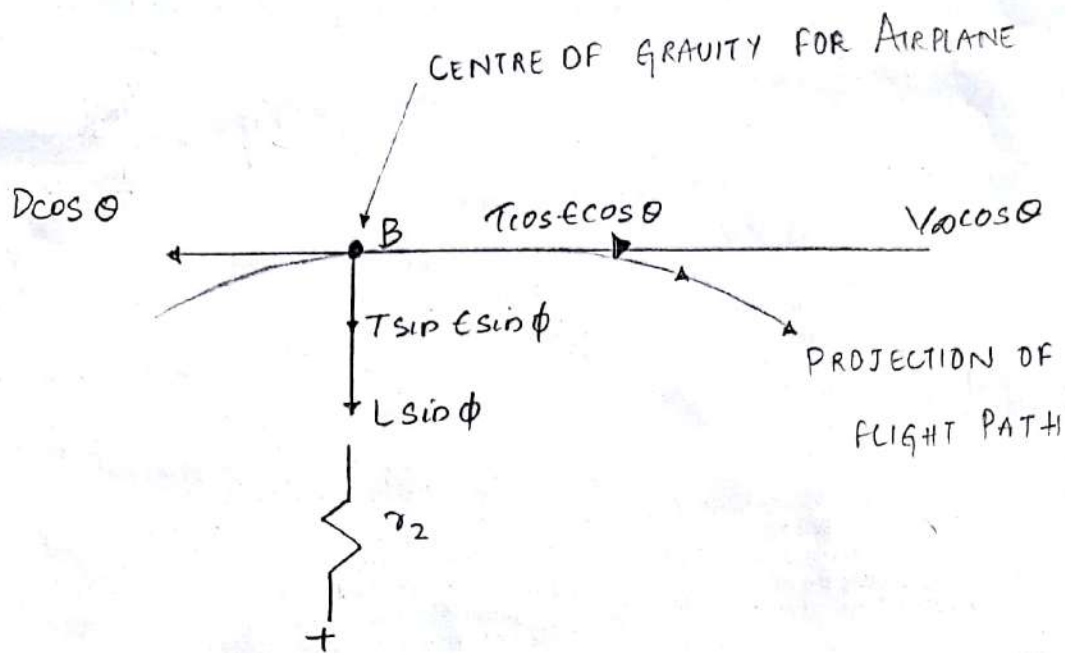 CENTRE OF GRAVITY FOR AIRPLANE
Dcos θ
B
Tcos ϵ cos θ
V∞cos θ
Tsin ϵ sin ϕ
Lsin ϕ
PROJECTION OF
FLIGHT PATH
r2